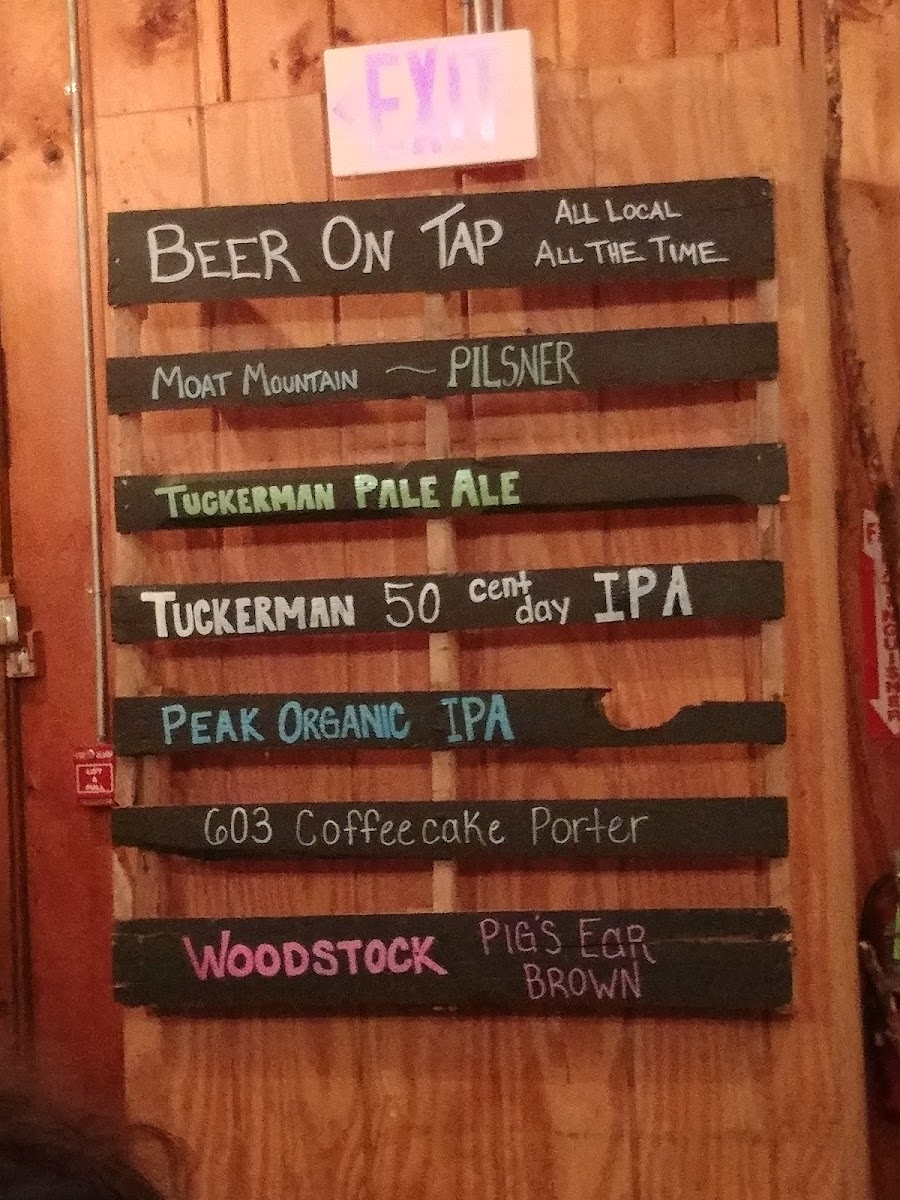 EXIT
BEER ON TAP
ALL LOCAL
ALL THE TIME
MOAT MOUNTAIN ~ PILSNER
TUCKERMAN PALE ALE
TUCKERMAN 50 cent day IPA
PEAK ORGANIC IPA
603 Coffeecake Porter
WOODSTOCK PIG'S EaR
BROWN